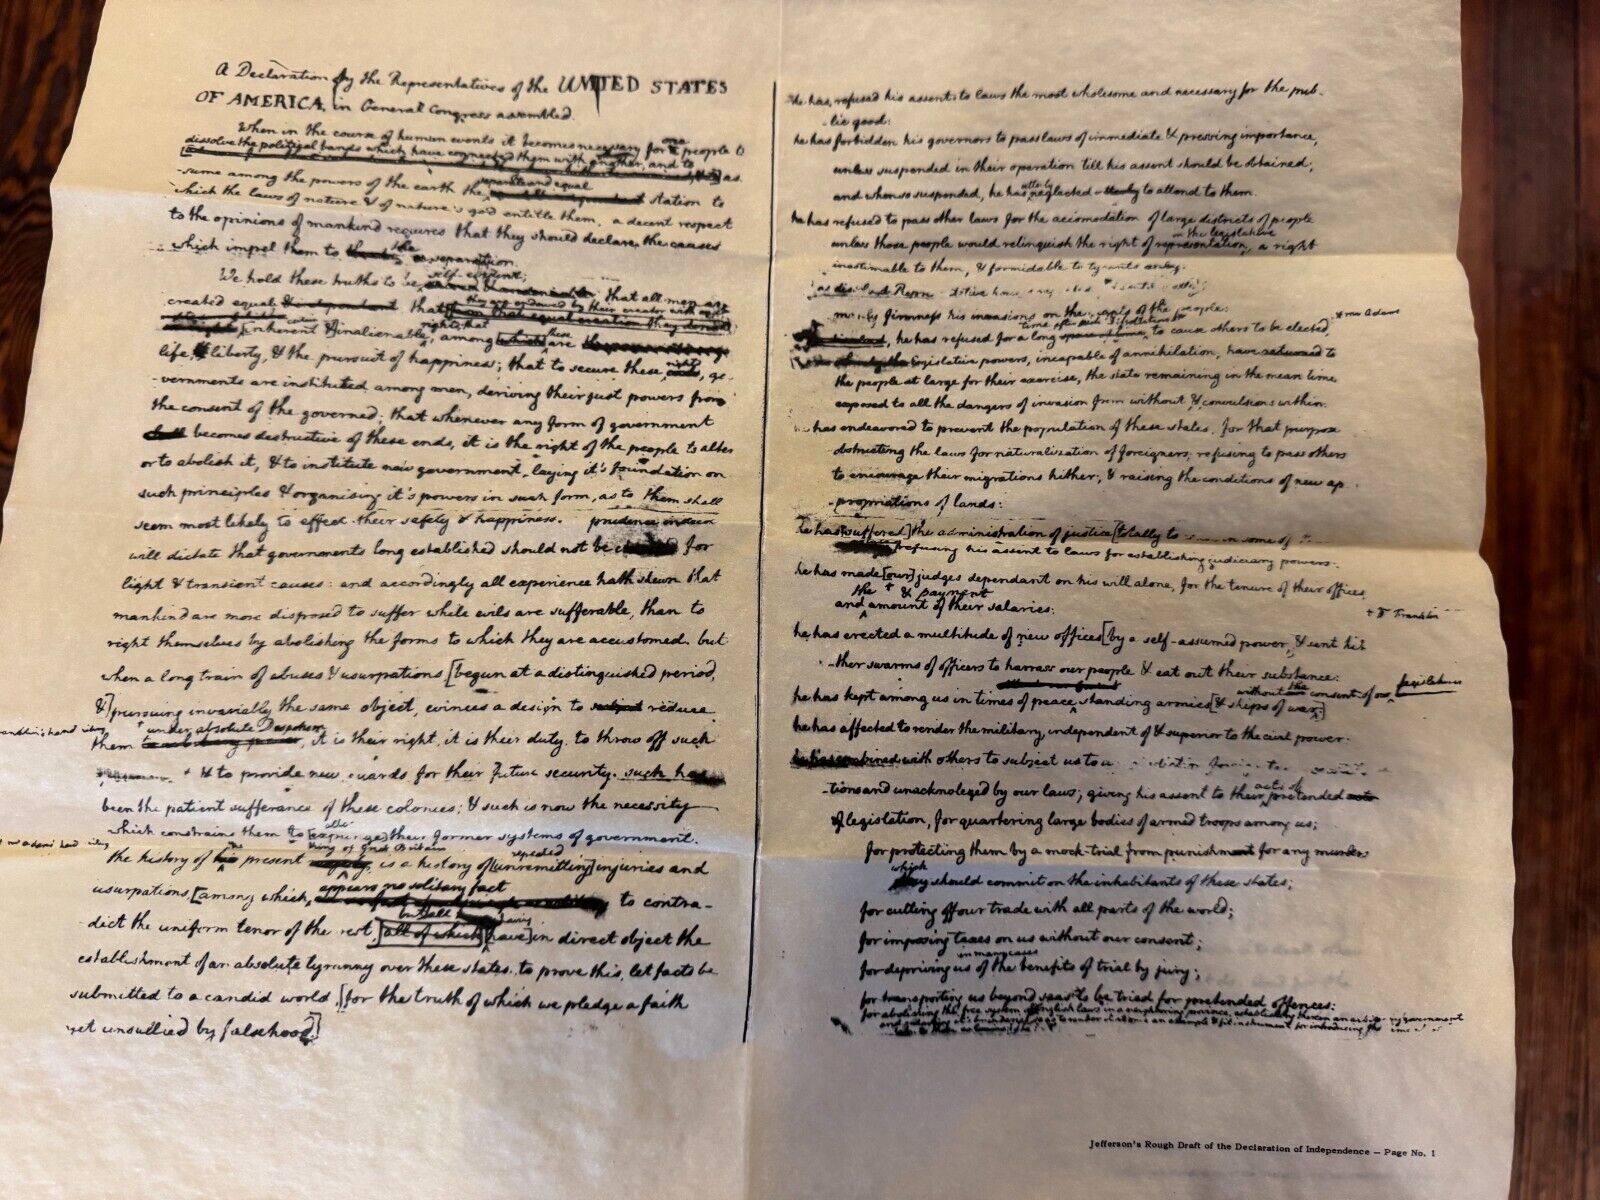 A Declaration by the Representatives of the UNITED STATES
OF AMERICA, in General Congress assembled.
When in the course of human events it becomes necessary for one people to
dissolve the political bands which have connected them with another, and to as-
-sume among the powers of the earth the separate and equal station to
which the laws of nature & of nature's god entitle them, a decent respect
to the opinions of mankind requires that they should declare the causes
which impel them to the separation.
We hold these truths to be self-evident; that all men are
created equal that they are endowed by their creator with
inherent & inalienable rights; that among these are
life, liberty, & the pursuit of happiness; that to secure these rights, go-
-vernments are instituted among men, deriving their just powers from
the consent of the governed; that whenever any form of government
becomes destructive of these ends, it is the right of the people to alter
or to abolish it, & to institute new government, laying it's foundation on
such principles & organising it's powers in such form, as to them shall
seem most likely to effect their safety & happiness. prudence indeed
will dictate that governments long established should not be for
light & transient causes: and accordingly all experience hath shewn that
mankind are more disposed to suffer while evils are sufferable, than to
right themselves by abolishing the forms to which they are accustomed. but
when a long train of abuses & usurpations [begun at a distinguished period,
&] pursuing invariably the same object, evinces a design to reduce
them under absolute Despotism, it is their right, it is their duty, to throw off such
& to provide new guards for their future security. such has
been the patient sufferance of these colonies; & such is now the necessity
which constrains them to [expunge] their former systems of government.
the history of the present king of Great Britain is a history of [unremitting] repeated injuries and
usurpations, [among which, appears no solitary fact to contra-
-dict the uniform tenor of the rest, but all having [all of which have] in direct object the
establishment of an absolute tyranny over these states. to prove this, let facts be
submitted to a candid world, [for the truth of which we pledge a faith
yet unsullied by falsehood]
he has refused his assent to laws the most wholesome and necessary for the pub-
-lic good:
he has forbidden his governors to pass laws of immediate & pressing importance,
unless suspended in their operation till his assent should be obtained;
and when so suspended, he has utterly neglected to attend to them.
he has refused to pass other laws for the accomodation of large districts of people
unless those people would relinquish the right of representation in the legislature, a right
inestimable to them, & formidable to tyrants only:
firmness his invasions on the rights of the people:
he has refused for a long time after such dissolutions to cause others to be elected,
* mr Adams
legislative powers, incapable of annihilation, have returned to
the people at large for their exercise, the state remaining in the mean time
exposed to all the dangers of invasion from without & convulsions within:
has endeavored to prevent the population of these states; for that purpose
obstructing the laws for naturalization of foreigners; refusing to pass others
to encourage their migrations hither; & raising the conditions of new ap-
-propriations of lands:
he has [suffered] the administration of justice [totally to in some of
refusing his assent to laws for establishing judiciary powers:
he has made [our] judges dependant on his will alone, for the tenure of their offices,
and the amount & payment of their salaries:
+ Dr Franklin
he has erected a multitude of new offices [by a self-assumed power, & sent hi-
-ther swarms of officers to harrass our people & eat out their substance:
he has kept among us in times of peace, standing armies [& ships of war] without the consent of our legislatures
he has affected to render the military, independent of & superior to the civil power:
he has combined with others to subject us to a
-tions and unacknoleged by our laws; giving his assent to their acts of pretended
of legislation, for quartering large bodies of armed troops among us;
for protecting them by a mock-trial from punishment for any murders
which they should commit on the inhabitants of these states;
for cutting off our trade with all parts of the world;
for imposing taxes on us without our consent;
for depriving us in many cases of the benefits of trial by jury;
for transporting us beyond seas to be tried for pretended offences:
for abolishing the free system of English laws in a neighboring province, establishing therein an arbitrary government
Jefferson's Rough Draft of the Declaration of Independence — Page No. 1